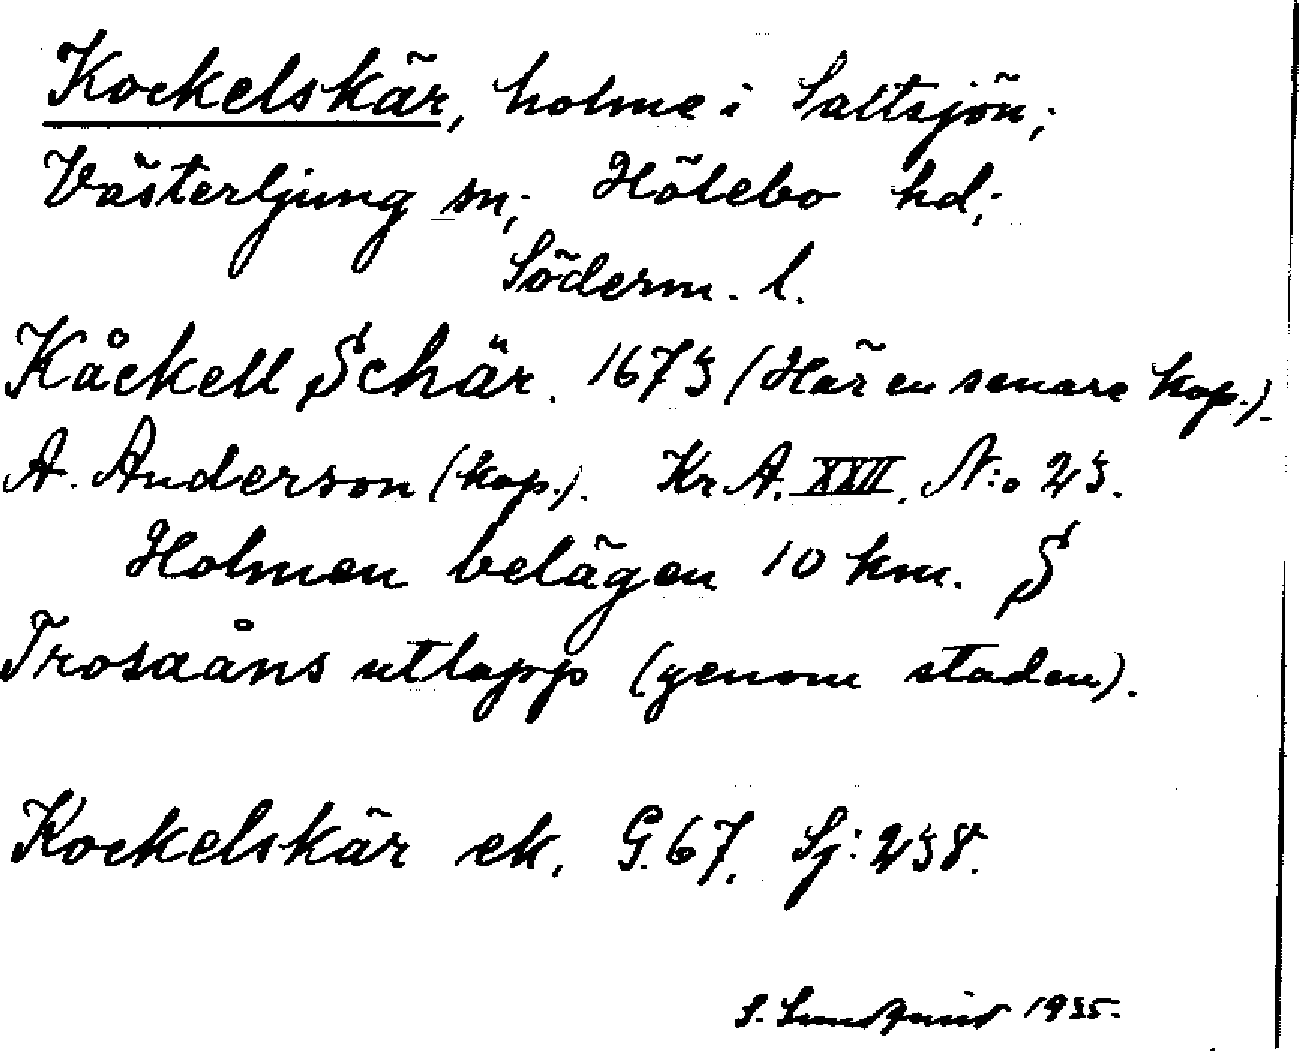 Kockelskär, holme i Saltsjön;
Västerljung sn; Hölebo hd;
Söderm. l.
Kåckell Schär. 1673 (Här en senare kop.).
A. Anderson (kop.). Kr A. XXII. N:o 23.
Holmen belägen 10 km. S
Trosaåns utlopp (genom staden).
Kockelskär ek. G. 67. Sj: 238.
S. Sundqvist 1935.